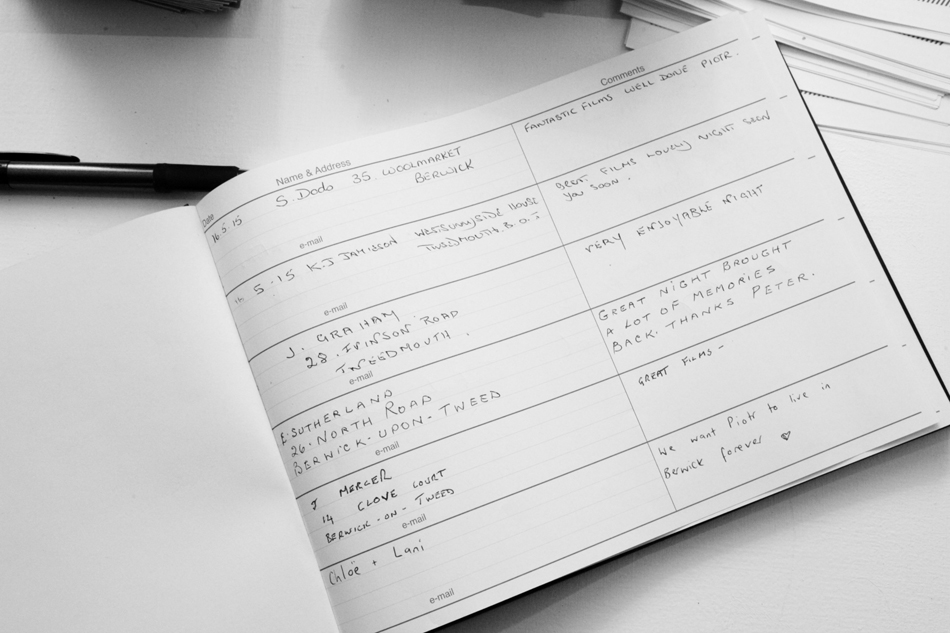 Date Name & Address Comments
16.5.15. S. Dodo 35 WOOLMARKET
BERWICK
FANTASTIC FILMS WELL DONE PIOTR.
e-mail
5.15 K.J JAMIESON WESTSUNNYSIDE HOUSE
TWEEDMOUTH. B.O.T
BEST FILMS LOVELY NIGHT SEEN
YOU SOON.
e-mail
J. GRAHAM
28. ROAD
TWEEDMOUTH.
VERY ENJOYABLE NIGHT
e-mail
E. SUTHERLAND
26. NORTH ROAD
BERWICK-UPON-TWEED
GREAT NIGHT BROUGHT
A LOT OF MEMORIES
BACK. THANKS PETER.
e-mail
J MERCER
14 CLOVE COURT
BERWICK-ON-TWEED
GREAT FILMS -
e-mail
Chloë + Lani
We want Piotr to live in
Berwick forever ♡
e-mail